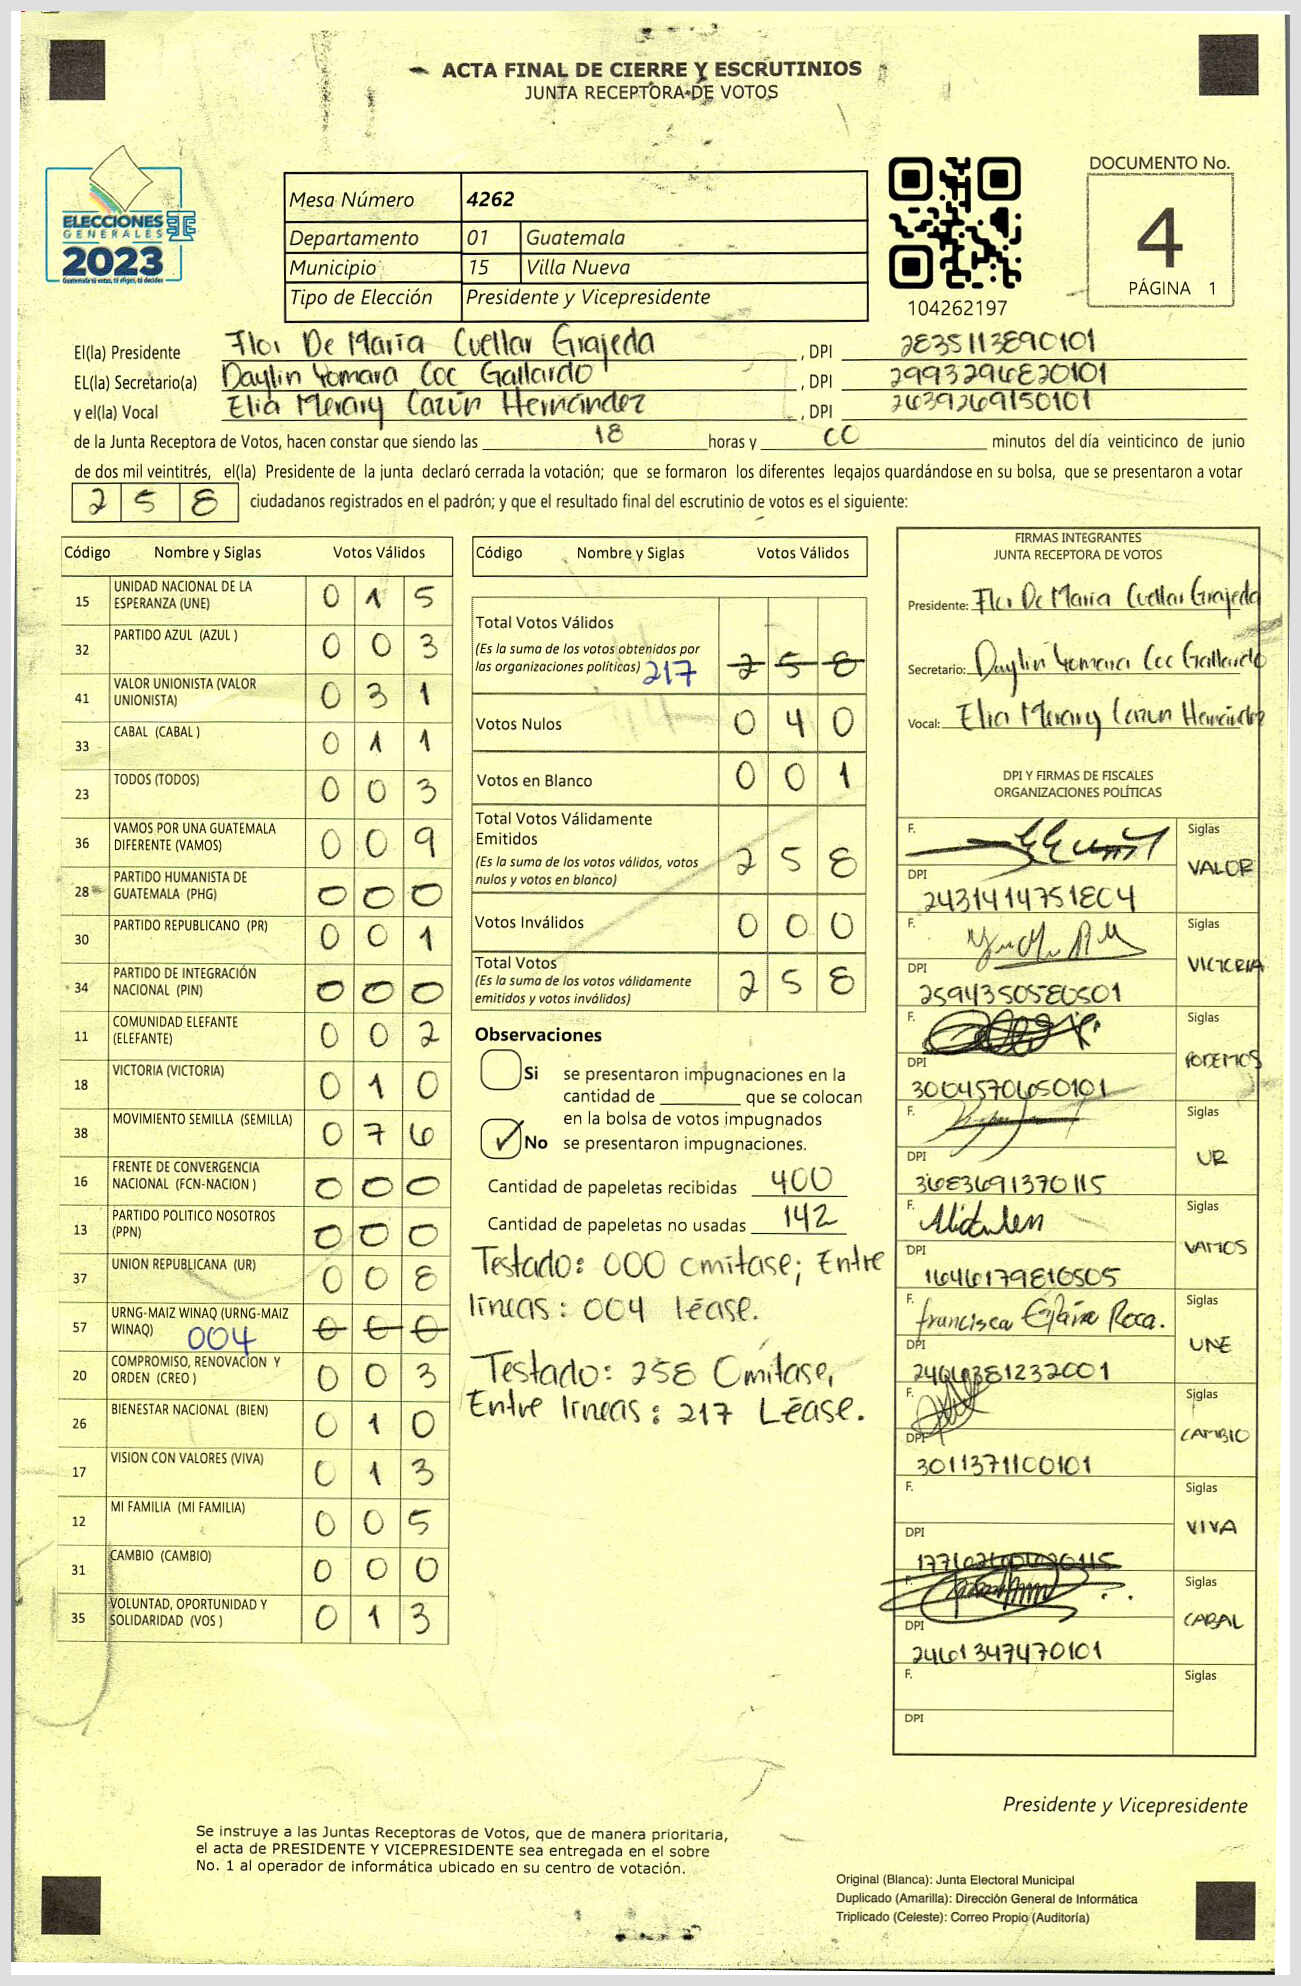 ACTA FINAL DE CIERRE Y ESCRUTINIOS
JUNTA RECEPTORA DE VOTOS
ELECCIONES
GENERALES
2023
Guatemala tú votas, tú eliges, tú decides
Mesa Número 4262
Departamento 01 Guatemala
Municipio 15 Villa Nueva
Tipo de Elección Presidente y Vicepresidente
104262197
DOCUMENTO No.
4
PÁGINA 1
El(la) Presidente Flor De María Cuellar Grajeda, DPI 2835113890101
EL(la) Secretario(a) Daylin Yomara Coc Gallardo, DPI 2993296820101
y el(la) Vocal Elia Merary Cazún Hernández, DPI 2639269150101
de la Junta Receptora de Votos, hacen constar que siendo las 18 horas y 00 minutos del día veinticinco de junio
de dos mil veintitrés, el(la) Presidente de la junta declaró cerrada la votación; que se formaron los diferentes legajos quardándose en su bolsa, que se presentaron a votar
258 ciudadanos registrados en el padrón; y que el resultado final del escrutinio de votos es el siguiente:
Código Nombre y Siglas Votos Válidos
15 UNIDAD NACIONAL DE LA ESPERANZA (UNE) 0 1 5
32 PARTIDO AZUL (AZUL ) 0 0 3
41 VALOR UNIONISTA (VALOR UNIONISTA) 0 3 1
33 CABAL (CABAL ) 0 1 1
23 TODOS (TODOS) 0 0 3
36 VAMOS POR UNA GUATEMALA DIFERENTE (VAMOS) 0 0 9
28 PARTIDO HUMANISTA DE GUATEMALA (PHG) 0 0 0
30 PARTIDO REPUBLICANO (PR) 0 0 1
34 PARTIDO DE INTEGRACIÓN NACIONAL (PIN) 0 0 0
11 COMUNIDAD ELEFANTE (ELEFANTE) 0 0 2
18 VICTORIA (VICTORIA) 0 1 0
38 MOVIMIENTO SEMILLA (SEMILLA) 0 7 6
16 FRENTE DE CONVERGENCIA NACIONAL (FCN-NACION ) 0 0 0
13 PARTIDO POLITICO NOSOTROS (PPN) 0 0 0
37 UNION REPUBLICANA (UR) 0 0 8
57 URNG-MAIZ WINAQ (URNG-MAIZ WINAQ) 004 0 0 0
20 COMPROMISO, RENOVACION Y ORDEN (CREO ) 0 0 3
26 BIENESTAR NACIONAL (BIEN) 0 1 0
17 VISION CON VALORES (VIVA) 0 1 3
12 MI FAMILIA (MI FAMILIA) 0 0 5
31 CAMBIO (CAMBIO) 0 0 0
35 VOLUNTAD, OPORTUNIDAD Y SOLIDARIDAD (VOS ) 0 1 3
Código Nombre y Siglas Votos Válidos
Total Votos Válidos
(Es la suma de los votos obtenidos por
las organizaciones políticas) 217 2 5 8
Votos Nulos 0 4 0
Votos en Blanco 0 0 1
Total Votos Válidamente
Emitidos
(Es la suma de los votos válidos, votos
nulos y votos en blanco) 2 5 8
Votos Inválidos 0 0 0
Total Votos
(Es la suma de los votos válidamente
emitidos y votos inválidos) 2 5 8
Observaciones
Si se presentaron impugnaciones en la
cantidad de ________ que se colocan
en la bolsa de votos impugnados
No se presentaron impugnaciones.
Cantidad de papeletas recibidas 400
Cantidad de papeletas no usadas 142
Testado: 000 omitase; Entre
líneas: 004 léase.
Testado: 258 Omitase,
Entre líneas: 217 Léase.
FIRMAS INTEGRANTES
JUNTA RECEPTORA DE VOTOS
Presidente: Flor De María Cuellar Grajeda
Secretario: Daylin Yomara Coc Gallardo
Vocal: Elia Merary Cazun Hernández
DPI Y FIRMAS DE FISCALES
ORGANIZACIONES POLÍTICAS
F. Siglas VALOR
DPI 2431414751804
F. Siglas VICTORIA
DPI 2594350580501
F. Siglas PODEMOS
DPI 3004570650101
F. Siglas UR
DPI 3683691370115
F. Siglas VAMOS
DPI 1646179810505
F. francisca Roca. Siglas UNE
DPI 2406381232001
F. Siglas CAMBIO
DPI 3011371100101
F. Siglas VIVA
DPI
F. Siglas CABAL
DPI 2461347470101
F. Siglas
DPI
Presidente y Vicepresidente
Se instruye a las Juntas Receptoras de Votos, que de manera prioritaria,
el acta de PRESIDENTE Y VICEPRESIDENTE sea entregada en el sobre
No. 1 al operador de informática ubicado en su centro de votación.
Original (Blanca): Junta Electoral Municipal
Duplicado (Amarilla): Dirección General de Informática
Triplicado (Celeste): Correo Propio (Auditoría)